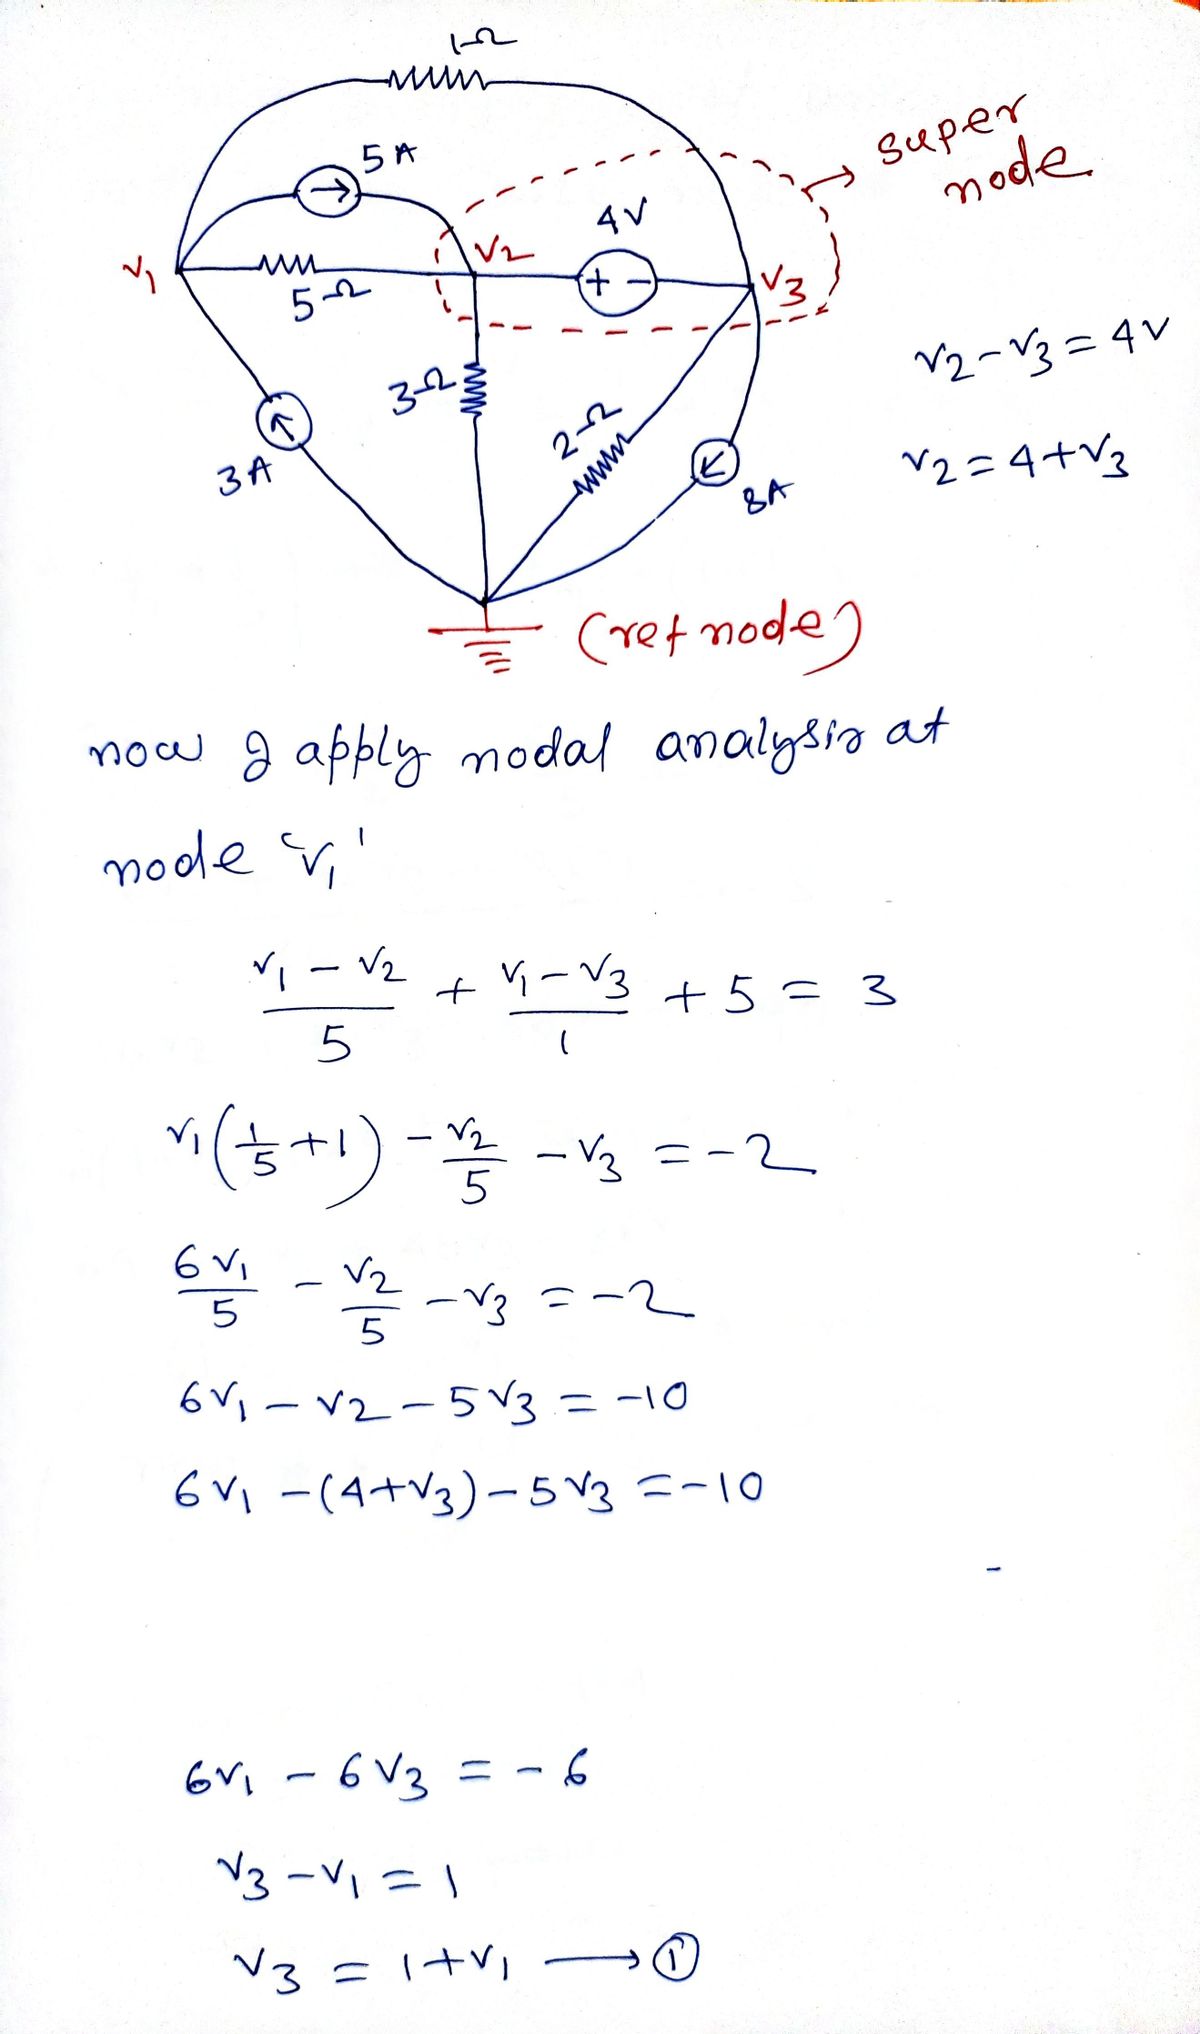 1Ω
5A
super
node
4V
V1
V2
+ -
V3
5Ω
V2 - V3 = 4V
3Ω
2Ω
V2 = 4 + V3
3A
8A
(ref node)
now I apply nodal analysis at
node 'V1'
(V1 - V2)/5 + (V1 - V3)/1 + 5 = 3
V1(1/5 + 1) - V2/5 - V3 = -2
6V1/5 - V2/5 - V3 = -2
6V1 - V2 - 5V3 = -10
6V1 - (4+V3) - 5V3 = -10
6V1 - 6V3 = -6
V3 - V1 = 1
V3 = 1 + V1 → ①